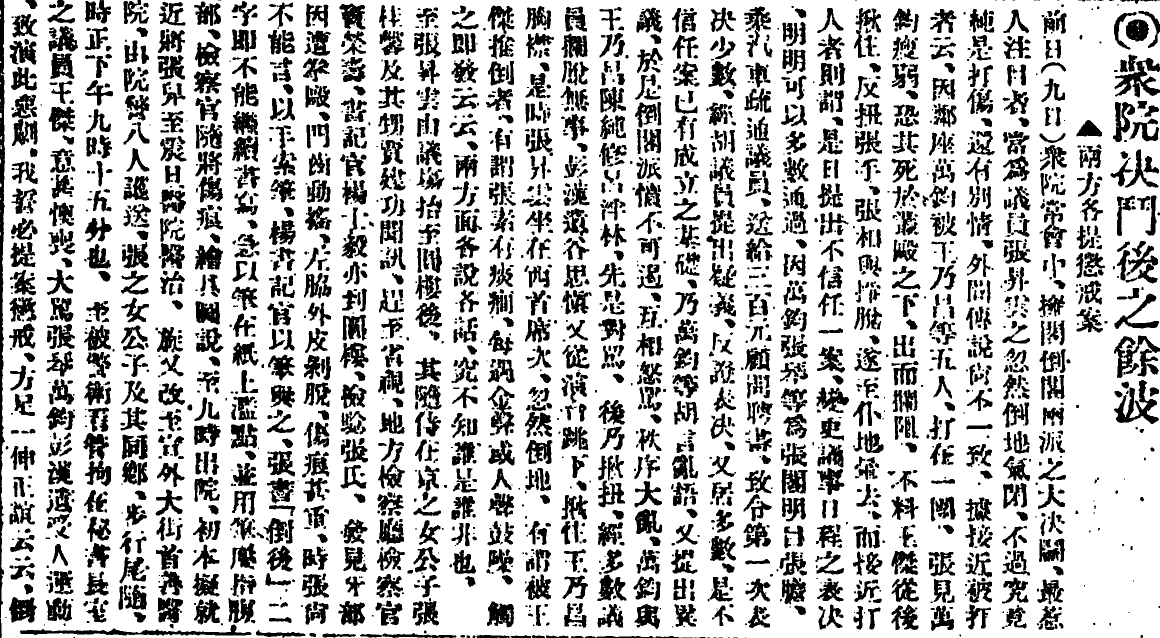 衆院决鬥後之餘波
▲兩方各提懲戒案
前日(九日)衆院常會中、擁閣倒閣兩派之大决鬬、最惹
人注目者、當爲議員張昇雲之忽然倒地氣閉、不過究竟
純是打傷、還有別情、外間傳說尙不一致、據接近被打
者云、因鄰座萬鈞被王乃昌等五人、打在一團、張見萬
鈞瘦弱、恐其死於叢毆之下、出而攔阻、不料王傑從後
揪住、反扭張手、張相與掙脫、遂至仆地暈去、而接近打
人者則謂、是日提出不信任一案、變更議事日程之表决
、明明可以多數通過、因萬鈞張琴等爲張閣明目張膽、
乘汽車疏通議員、送給三百元顧問聘書、致令第一次表
决少數、經胡議員提出疑義、反證表决、又居多數、是不
信任案已有成立之基礎、乃萬鈞等胡言亂語、又提出異
議、於是倒閣派憤不可遏、互相怒罵、秩序大亂、萬鈞與
王乃昌陳純修呂泮林、先是對罵、後乃揪扭、經多數議
員攔脫無事、彭漢遺谷思愼又從演台跳下、揪住王乃昌
胸襟、是時張昇雲坐在西首席次、忽然倒地、有謂被王
傑推倒者、有謂張素有痰癎、每遇金聲或人聲鼓噪、觸
之即發云云、兩方面各說各話、究不知誰是誰非也、
至張昇雲由議場抬至圖樓後、其隨侍在京之女公子張
桂馨及其甥賈建功聞訊、趕至省視、地方檢察廳檢察官
賓榮壽、書記官楊士毅亦到圖樓、檢驗張氏、發見牙部
因遭拳毆、四齒動搖、左脇外皮剝脫、傷痕甚重、時張尙
不能言、以手索筆、楊書記官以筆與之、張書「倒後」二
字即不能繼續書寫、急以筆在紙上濫點、並用筆壓指腹
部、檢察官隨將傷痕、繪具圖說、至九時出院、初本擬就
近將張舁至震旦醫院醫治、旋又改至宣外大街首善醫
院、由院警八人護送、張之女公子及其同鄉、步行尾隨、
時正下午九時十五分也、至被警衛看管拘在秘書長室
之議員王傑、意甚懊喪、大罵張琴萬鈞彭漢遺受人運動
、致演此惡劇、我誓必提案懲戒、方足一伸正誼云云、倒